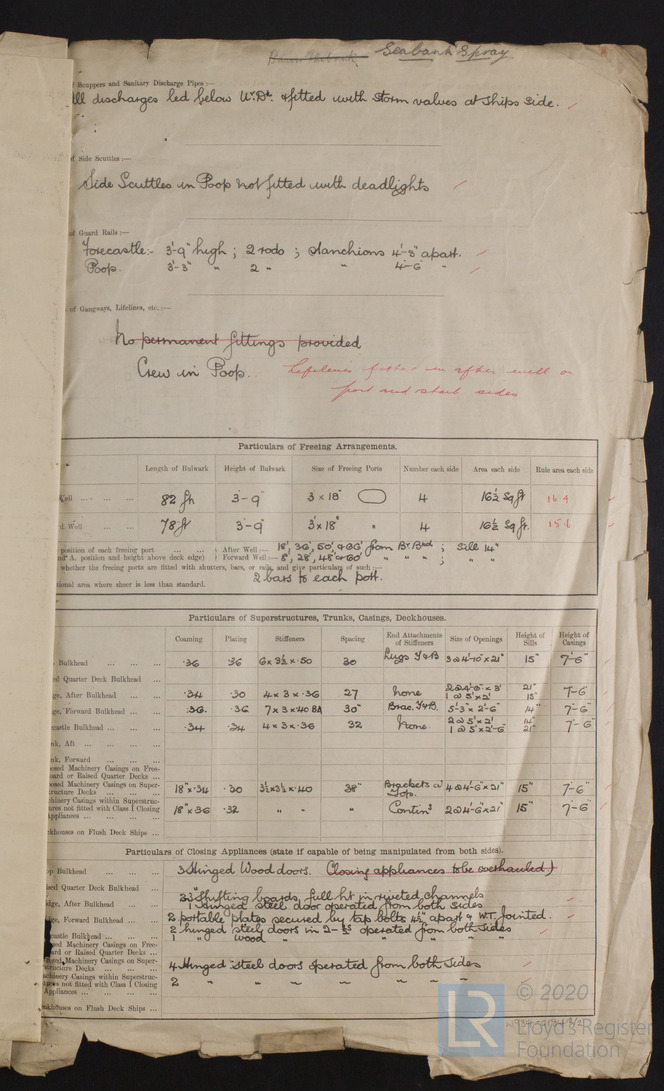 Seabank Spray
f Scuppers and Sanitary Discharge Pipes :—
All discharges led below Ur. Dk. & fitted with storm valves at ships side.
of Side Scuttles :—
Side Scuttles in Poop not fitted with deadlights
of Guard Rails :—
Forecastle:- 3'-9" high ; 2 rods ; stanchions 4'-3" apart.
Poop. 3'-3" " 2 " " 4'-6" "
of Gangways, Lifelines, etc. :—
No permanent fittings provided
Crew in Poop. Lifelines fitted in after well on
port and starb sides
Particulars of Freeing Arrangements.
Length of Bulwark Height of Bulwark Size of Freeing Ports Number each side Area each side Rule area each side
Well ... ... ... 82 ft 3-9" 3 x 18" 4 16½ Sq ft. 16.4
d Well ... ... 78 ft 3-9" 3' x 18" " 4 16½ Sq ft. 15.6
position of each freeing port ... ... After Well :— 18', 36', 50', & 66' from Br Bhd ; Sill 14"
A. position and height above deck edge) Forward Well :— 8', 28', 48' or 60' " " " ; " "
whether the freeing ports are fitted with shutters, bars, or rails, and give particulars of such :—
2 bars to each port.
tional area where sheer is less than standard.
Particulars of Superstructures, Trunks, Casings, Deckhouses.
Coaming Plating Stiffeners Spacing End Attachments of Stiffeners Size of Openings Height of Sills Height of Casings
Bulkhead ... ... ... .36 .36 6 x 3½ x .50 30 Lugs T&B 3 @ 4'-10" x 21" 15" 7'-6"
ed Quarter Deck Bulkhead
ge, After Bulkhead ... .34 .30 4 x 3 x .36 27 none 2 @ 4'-6" x 3' 21" 7'-6"
1 @ 5' x 2' 15"
ge, Forward Bulkhead ... .36. .36 7 x 3 x .40 BA 30" Brac. T&B. 5'-3" x 2'-6" 14" 7'-6"
castle Bulkhead ... ... .34 .34 4 x 3 x .36 32 None 2 @ 5' x 2' 14" 7'-6"
1 @ 5' x 2'-6" 21"
nk, Aft ... ... ...
nk, Forward
osed Machinery Casings on Free-
oard or Raised Quarter Decks ...
osed Machinery Casings on Super-
structure Decks ... ... ... 18" x .34 .30 3½ x 3½ x .40 38" Brackets @ Top. 4 @ 4'-6" x 21" 15" 7'-6"
chinery Casings within Superstruc-
ures not fitted with Class I Closing
Appliances ... ... ... 18" x 36 .32 " " " Contins 2 @ 4'-6" x 21" 15" 7'-6"
ckhouses on Flush Deck Ships ...
Particulars of Closing Appliances (state if capable of being manipulated from both sides).
p Bulkhead ... ... ... 3 Hinged Wood doors. Closing appliances to be overhauled
sed Quarter Deck Bulkhead
Shifting boards full ht in riveted channels
dge, After Bulkhead ... ... 1 Hinged steel door operated from both sides.
ge, Forward Bulkhead ... ... 2 portable plates secured by tap bolts 4½" apart & W.T. jointed.
castle Bulkhead ... ... ... 2 hinged steel doors in operated from both sides
1 " Wood " " " " "
osed Machinery Casings on Free-
ard or Raised Quarter Decks ...
osed Machinery Casings on Super-
structure Decks ... ... ... 4 Hinged steel doors operated from both sides
chinery Casings within Superstruc-
ures not fitted with Class I Closing
Appliances ... ... ... 2 " " " " " "
ckhouses on Flush Deck Ships ...
LR
© 2020
Lloyd's Register
Foundation